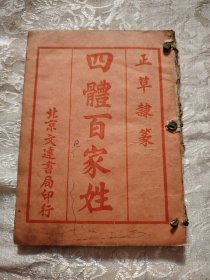 正草隸篆
四體百家姓
北京文達書局印行